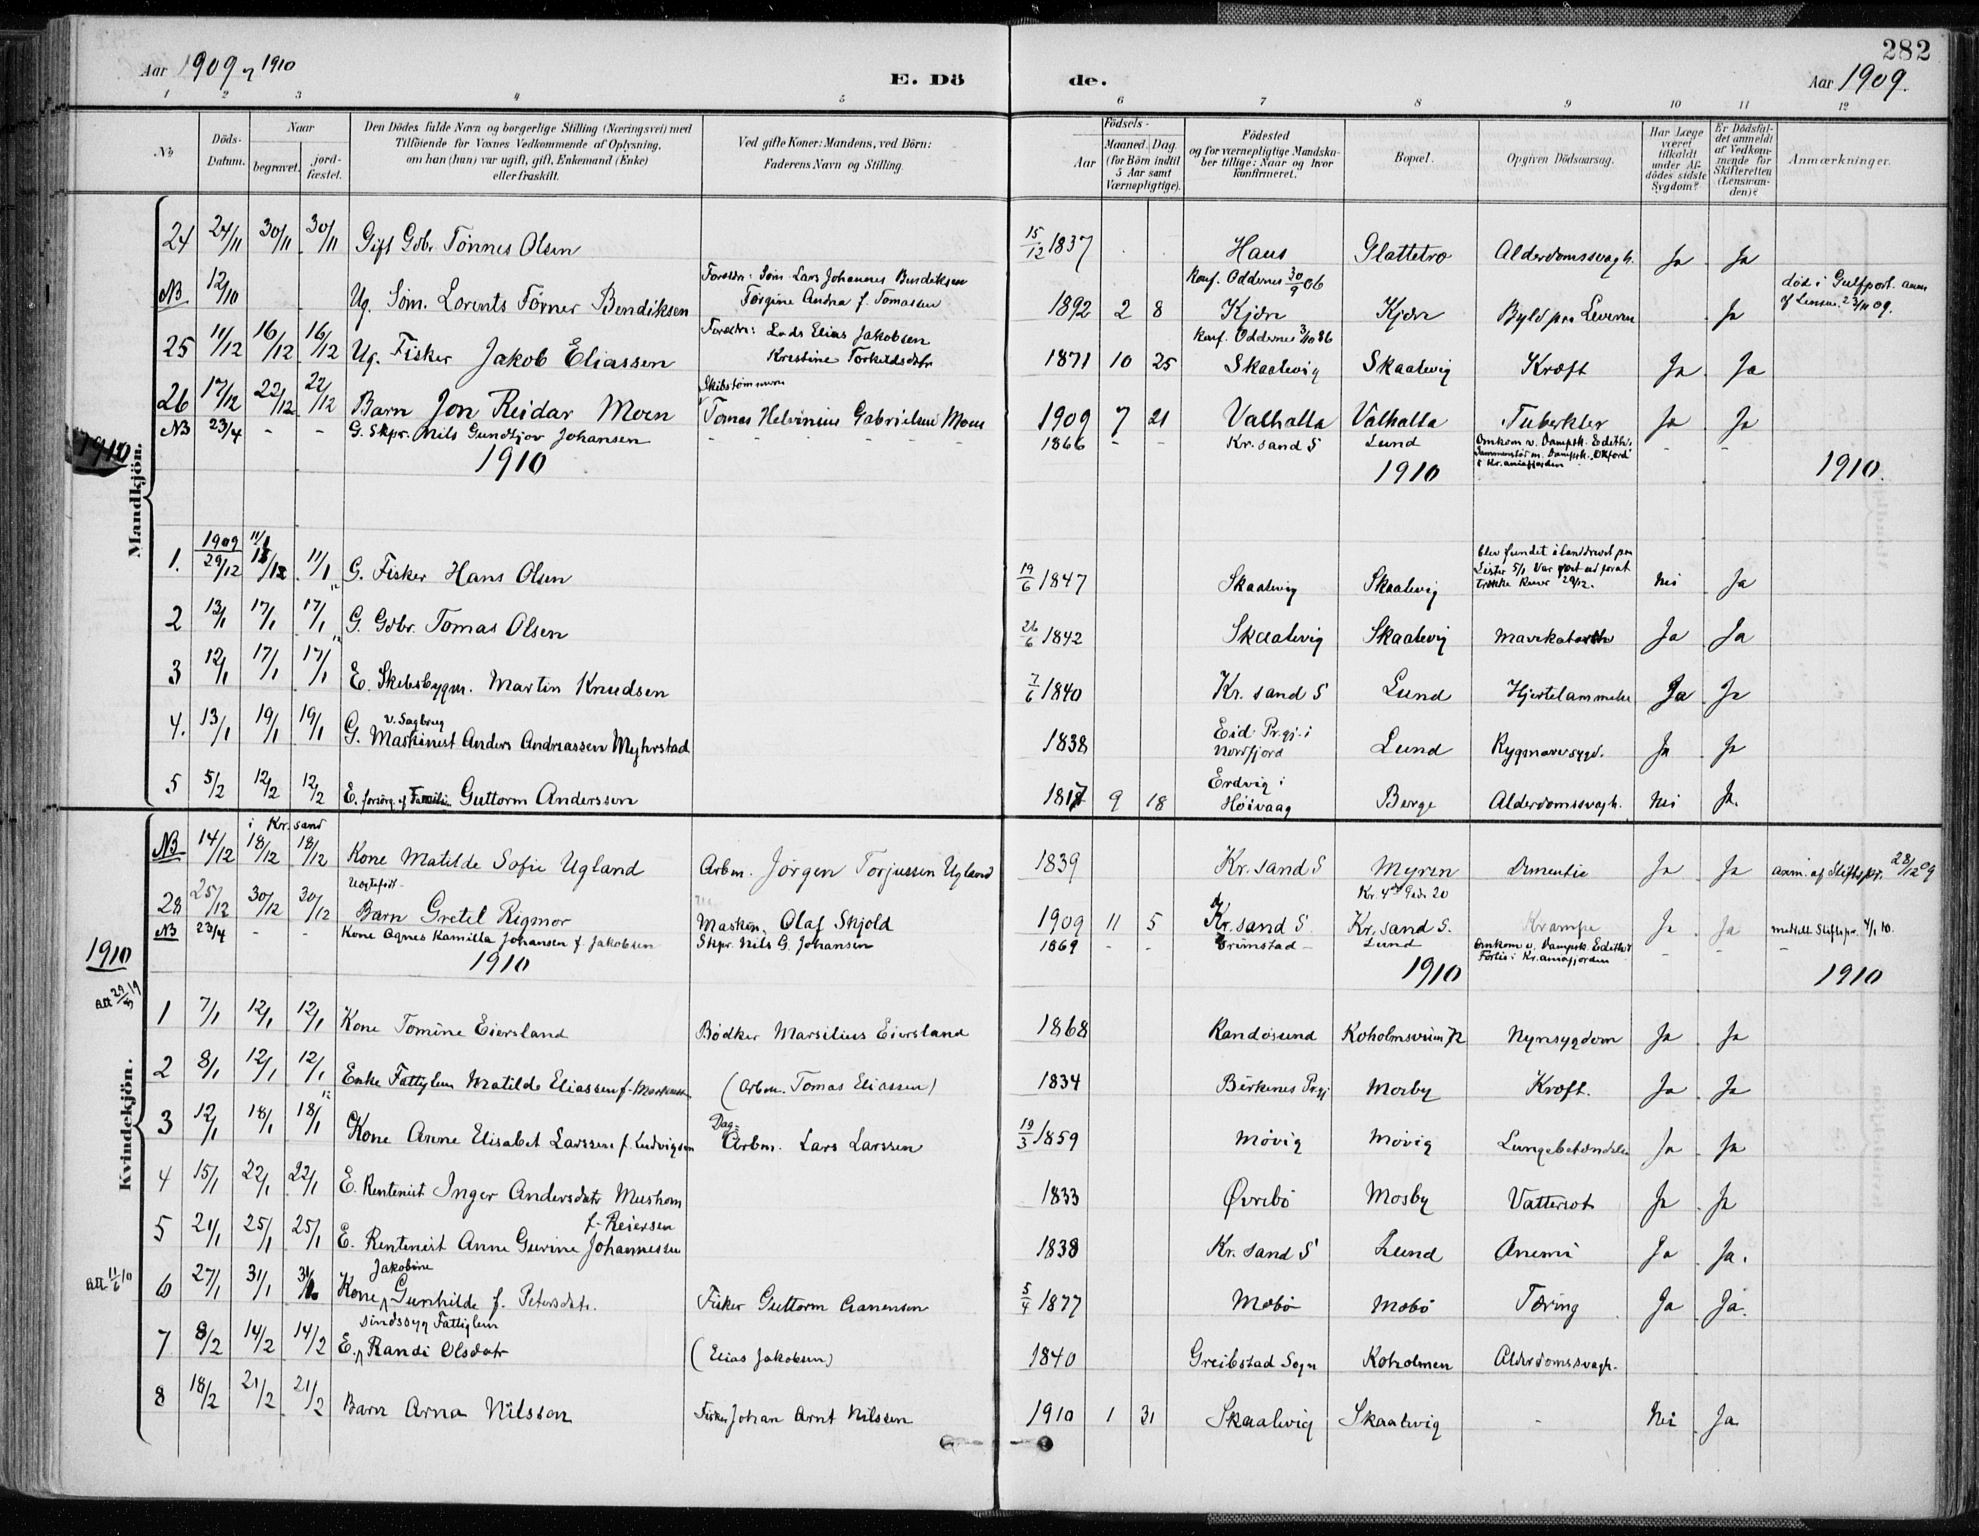 282
Aar 1909 & 1910
E. Dö
de.
Aar 1909.
1 2 3 4 5 6 7 8 9 10 11 12
No
Döds-Datum.
Naar
begravet.
jord-fæstet.
Den Dödes fulde Navn og borgerlige Stilling (Næringsvei) med
Tilföiende for Voxnes Vedkommende af Oplysning,
om han (hun) var ugift, gift, Enkemand (Enke)
eller fraskilt.
Ved gifte Koner: Mandens, ved Börn:
Faderens Navn og Stilling.
Födsels-
Aar
Maaned. Dag.
(for Börn indtil
5 Aar samt
Værnepligtige).
Födested
og for værnepligtige Mandska-
ber tillige: Naar og hvor
konfirmeret.
Bopæl.
Opgiven Dödsaarsag.
Har Læge
været
tilkaldt
under Af-
dödes sidste
Sygdom?
Er Dödsfal-
det anmeldt
af Vedkom-
mende for
Skifteretten
(Lensman-
den)?
Anmærkninger.
Mandkjön.
24 24/11 30/11 30/11 Gift Gdbr. Tönnes Olsen 15/12 1837 Haus Glattetre Alderdomssvagh. Ja Ja
Foreldr: Söm. Lars Johannes Bendiksen konf. Oddernes 30/9 06 död i Gulfport. anm.
NB 12/10 Ug. Söm. Lorents Törner Bendiksen Törgine Andrea f. Tomassen 1892 2 8 Kjær Kjær Byld paa Leveren Ja af Lensm. 23/11 09.
Foreldr: Lods Elias Jakobsen konf. Oddernes 3/10 86
25 11/12 16/12 16/12 Ug. Fisker Jakob Eliassen Kristine Torkildsdtr 1871 10 25 Skaalevig Skaalevig Kræft Ja Ja
Skibstömmerm
26 17/12 22/12 22/12 Barn Jon Reidar Moen Tomas Helvinius Gabrielsen Moen 1909 7 21 Valhalla Valhalla Tuberkler Ja Ja
NB 23/4 - - G. Skpr. Nils Gundtjov Johansen 1866 - - Kr.sand S Lund Omkom v. Dampsk. Edith's
Sammenstöd m. Dampsk. Okfjord
i Kr.aniafjorden - -
1910 1910 1910 1910.
1. 1909 29/12 11/1 11/1 G. Fisker Hans Olsen 19/6 1847 Skaalevig Skaalevig blev fundet i Landdrevet paa
Lister 5/1 Var reist ud forat
trække Ruser 29/12. Nei Ja
2 13/1 17/1 17/1 G. Gdbr. Tomas Olsen 26/6 1842 Skaalevig Skaalevig Mavekatarrh Ja Ja
3 12/1 17/1 17/1 E. Skibsbygm. Martin Knudsen 7/6 1840 Kr. sand S Lund Hjertelammelse Ja Ja
v. Sagbrug
4. 13/1 19/1 19/1 G. Maskinist Anders Andreassen Myhrstad 1838 Eid Prgj. i
Nordfjord Lund Rygmarvssygd. Ja Ja
5 5/2 12/2 12/2 E. forsörg. af Familie Guttorm Anderssen 1817 9 18 Erdvig i
Höivaag Berge Alderdomssvagh. Nei Ja.
Kvindekjön.
i Kr.sand
NB 14/12 18/12 18/12 Kone Matilde Sofie Ugland Arbm. Jörgen Torjussen Ugland 1839 Kr. sand S Myren Dementie Ja Ja anm. af Stiftspr. 28/12 09
Uægtefödt
28 25/12 30/12 30/12 Barn Gretel Rigmor Maskin. Olaf Skjold 1909 11 5 Kr.sand S Kr. 4de Gade 20
Kr.sand S. Krampe Ja Ja meddelt Stiftspr. 4/1 10.
NB 23/4 - - Kone Agnes Kamilla Johansen f. Jakobsen Skpr. Nils G. Johansen 1869 - - Grimstad - Lund Omkom v. Dampsk. Edith's
Forlis i Kr.aniafjorden - - -
1910 1910 1910 1910
Att 29/3 19
1 7/1 12/1 12/1 Kone Tomine Eiersland Bödker Marsilius Eiersland 1868 Randösund Koholmsveien 72 Nyresygdom Ja Ja
2 8/1 12/1 12/1 Enke Fattiglem Matilde Eliassen f. Markussen (Arbm. Tomas Eliassen) 1834 Birkenes Prgj Mosby Kræft. Ja Ja
3 12/1 18/1 18/1 Kone Anne Elisabet Larssen f. Ludvigsen Dag-Arbm. Lars Larssen 19/3 1859 Mövig Mövig Lungebetændelse Ja Ja
4 15/1 22/1 22/1 E. Rentenist Inger Andersdatr Mushom 1833 Övrebö Mosby Vattersot Ja Ja
f. Reiersen
5 21/1 25/1 25/1 E. Rentenist Anne Gurine Johannessen 1838 Kr. sand S Lund Anemi Ja Ja.
Att 11/6 10
Jakobine
6 27/1 31/1 31/1 Kone Gunhilde f. Petersdatr. Fisker Guttorm Gunensen 5/4 1877 Mæbö Mæbö Tæring Ja Ja.
sindssyg Fattiglem
7 8/2 14/2 14/2 E. Randi Olsdatr (Elias Jakobsen) 1840 Greibstad Sogn Koholmen Alderdomssvagh.
8 18/2 21/2 21/2 Barn Arna Nilsson Fisker Johan Arnt Nilssen 1910 1 31 Skaalevig Skaalevig - Nei Ja